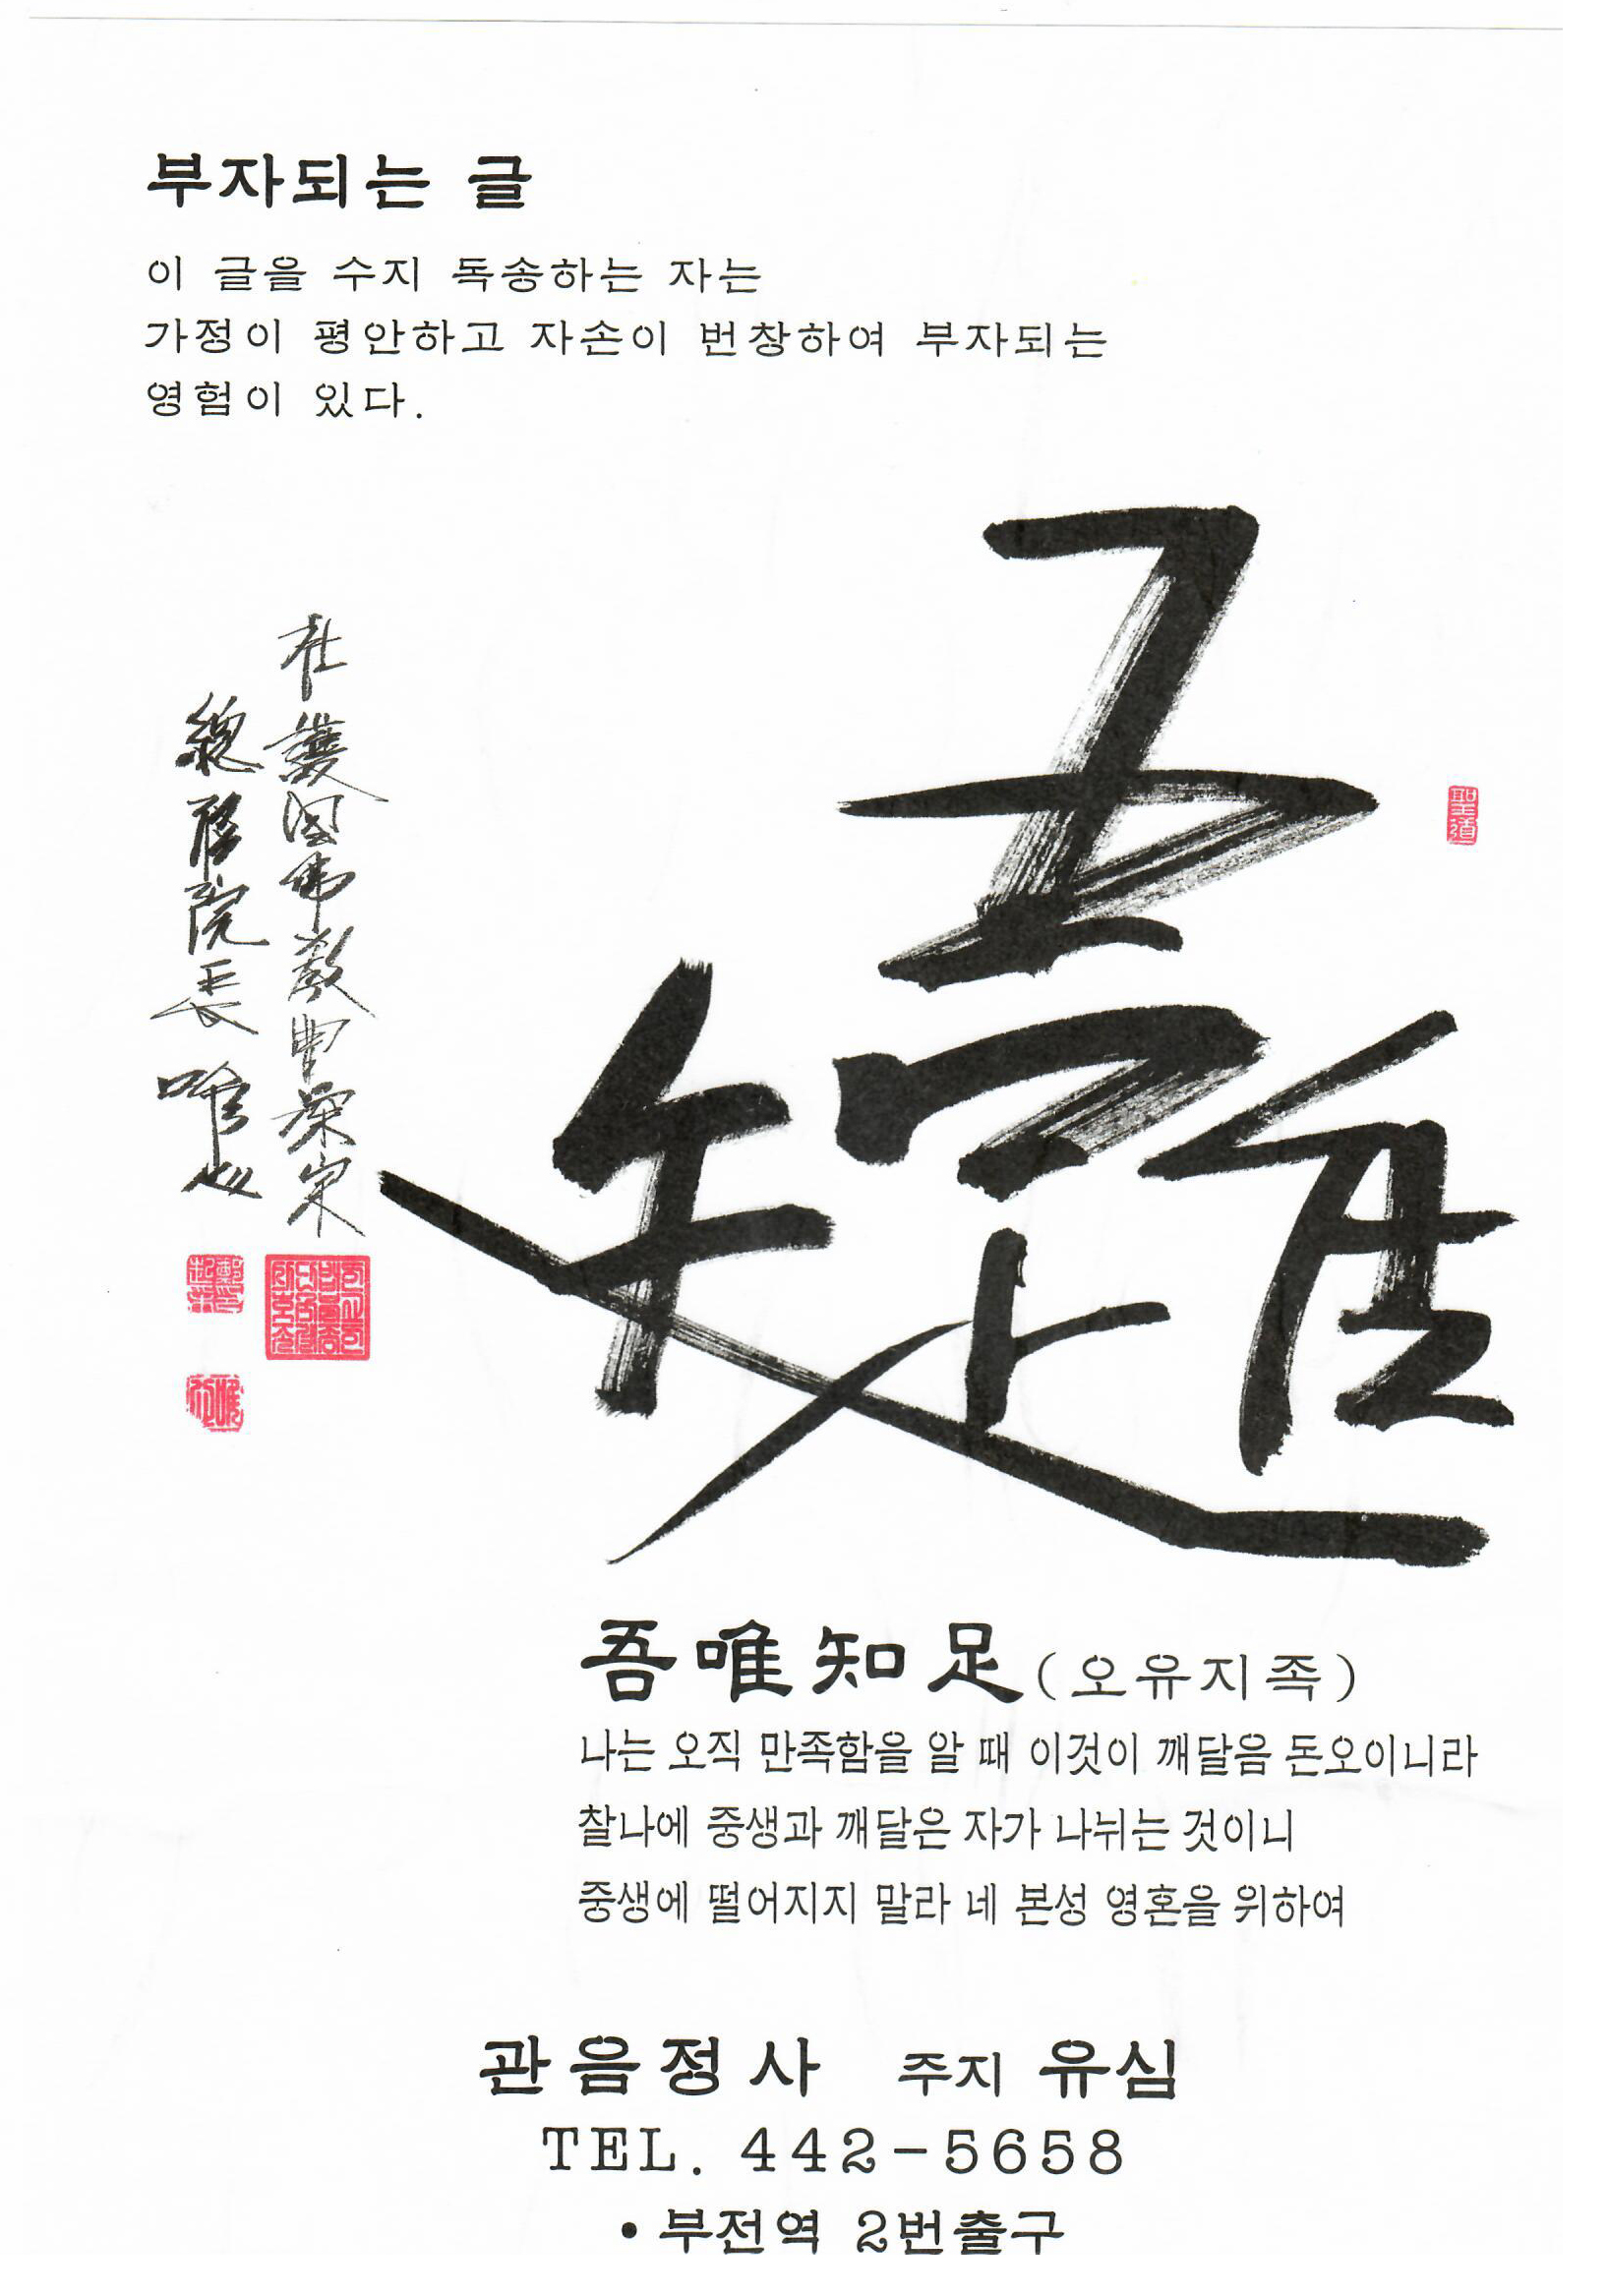 부자되는 글
이 글을 수지 독송하는 자는
가정이 평안하고 자손이 번창하여 부자되는
영험이 있다.
護國佛敎曹溪宗
總務院長 唯心
聖道
吾唯知足
吾唯知足(오유지족)
나는 오직 만족함을 알 때 이것이 깨달음 돈오이니라
찰나에 중생과 깨달은 자가 나뉘는 것이니
중생에 떨어지지 말라 네 본성 영혼을 위하여
관음정사 주지 유심
TEL. 442-5658
• 부전역 2번출구